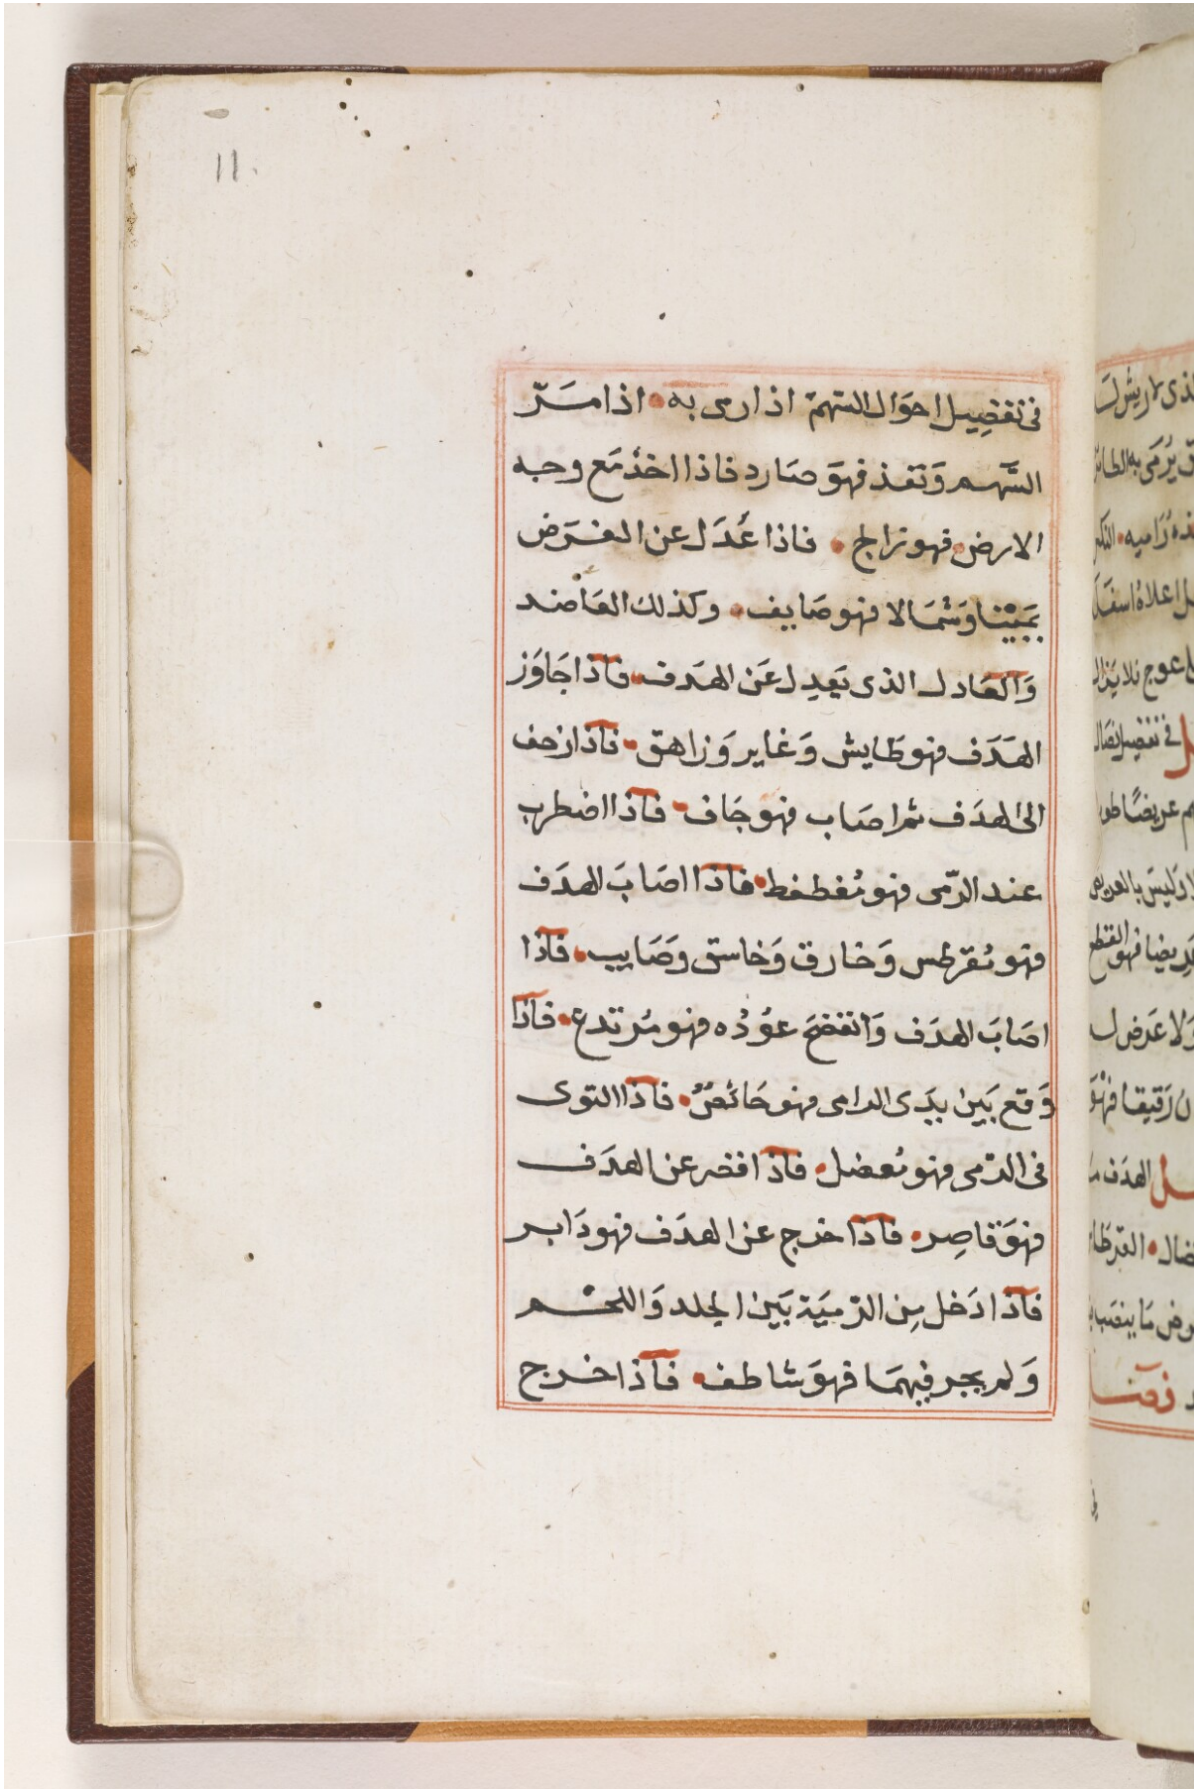 11.
فى تفضِيل احوَال السّهم اذا رمى به • اذا مَرّ
السَّهم وَنفذ فهوَ صَارد فاذا اخذ مَع وجه
الارض • فهو زالج • فاذا عُدَل عن الغرَض
يَمَيْنا وَشمَالا فهو صَايف • وكذلك العَاضد
وَالعَادل الذى يَعدِل عَن الهدَف • فاذا جَاوَز
الهَدَف فهو طَايش وَغاير وَزاهق • فاذا زحف
الى الهدَف ثم اصَاب فهو حَاف • فاذا اضطرب
عند الرّمى فهو مُغطغط • فاذا اصَابَ الهدَف
فهو مُقرطس وَخارق وَخاسق وصَايب • فاذا
اصَابَ الهدَف وَانفضخَ عوُدُه فهو مُرتدع • فاذا
وَقع بَين يدَى الرامى فهو حَائصٌ • فاذا التوى
فى الرّمى فهو مُعضل • فاذا قصر عن الهدَف
فهوَ قاصِر • فاذا خرج عن الهدَف فهو دَابر
فاذا دَخل مِن الرّميَة بَين الجلد وَاللحْم
وَلم يجر فيهمَا فهوَ شاطف • فاذا خرج